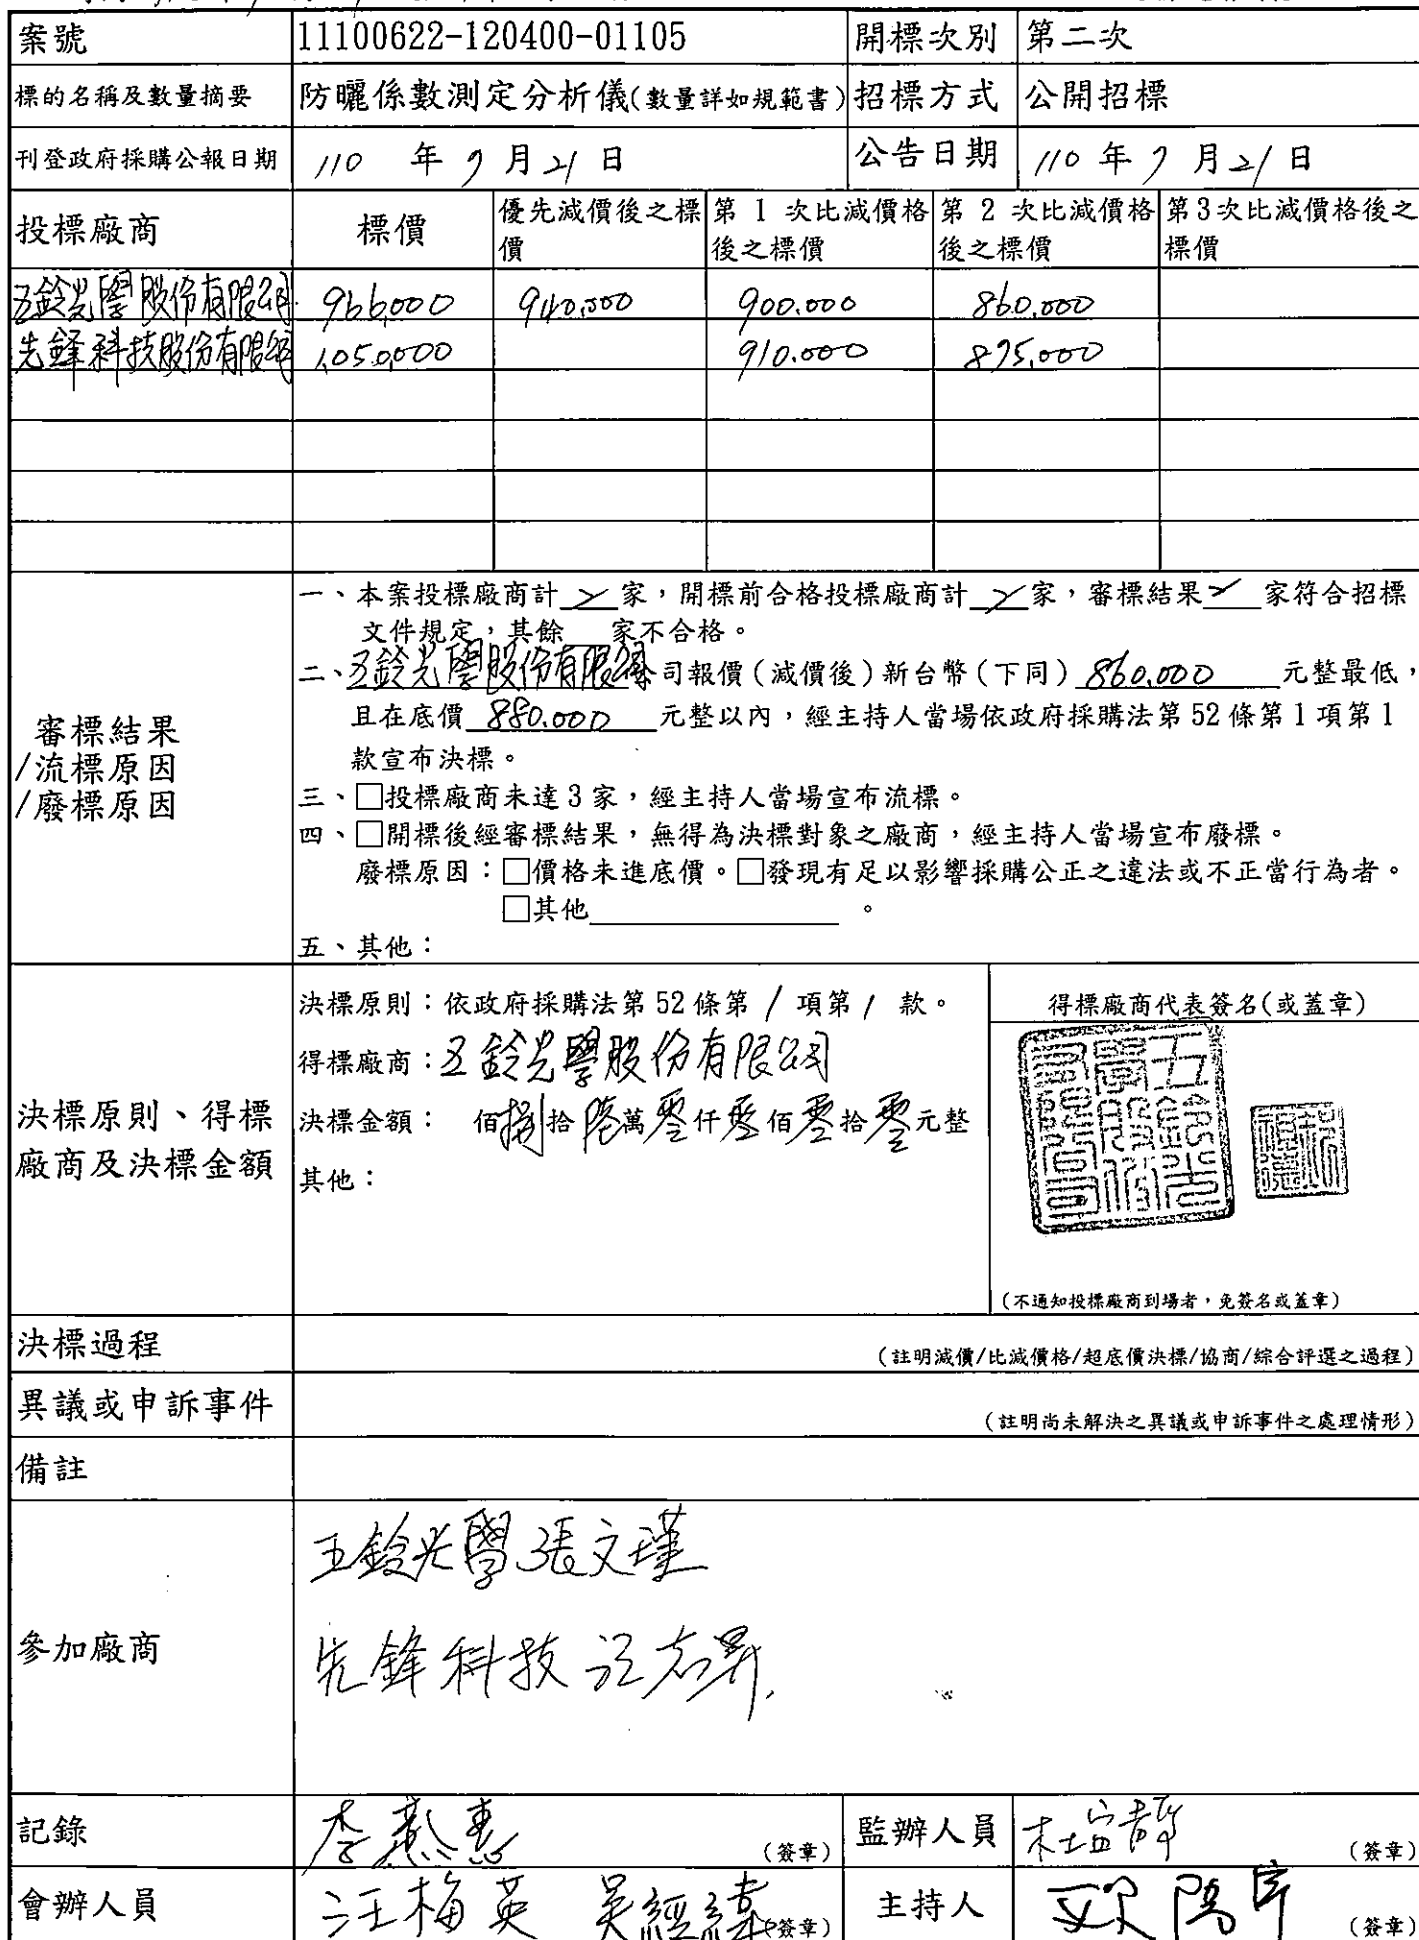 案號 11100622-120400-01105 開標次別 第二次
標的名稱及數量摘要 防曬係數測定分析儀(數量詳如規範書) 招標方式 公開招標
刊登政府採購公報日期 110 年 7 月 21 日 公告日期 110 年 7 月 21 日
投標廠商 標價 優先減價後之標價 第 1 次比減價格後之標價 第 2 次比減價格後之標價 第3次比減價格後之標價
五鈴光學股份有限公司 966,000 940,000 900,000 860,000
先鋒科技股份有限公司 1,050,000 910,000 875,000
審標結果
/流標原因
/廢標原因
一、本案投標廠商計 2 家，開標前合格投標廠商計 2 家，審標結果 2 家符合招標
文件規定，其餘 家不合格。
二、五鈴光學股份有限公司報價(減價後)新台幣(下同) 860,000 元整最低，
且在底價 880,000 元整以內，經主持人當場依政府採購法第 52 條第 1 項第 1
款宣布決標。
三、□投標廠商未達 3 家，經主持人當場宣布流標。
四、□開標後經審標結果，無得為決標對象之廠商，經主持人當場宣布廢標。
廢標原因：□價格未進底價。□發現有足以影響採購公正之違法或不正當行為者。
□其他 。
五、其他：
決標原則、得標
廠商及決標金額
決標原則：依政府採購法第 52 條第 1 項第 1 款。
得標廠商：五鈴光學股份有限公司
決標金額： 佰捌拾陸萬零仟零佰零拾零元整
其他：
得標廠商代表簽名(或蓋章)
五鈴光學股份有限公司
(不通知投標廠商到場者，免簽名或蓋章)
決標過程 (註明減價/比減價格/超底價決標/協商/綜合評選之過程)
異議或申訴事件 (註明尚未解決之異議或申訴事件之處理情形)
備註
參加廠商
五鈴光學 張文瑾
先鋒科技
記錄 李 惠 (簽章) 監辦人員 (簽章)
會辦人員 汪梅英 吳經緯 (簽章) 主持人 歐陽 (簽章)